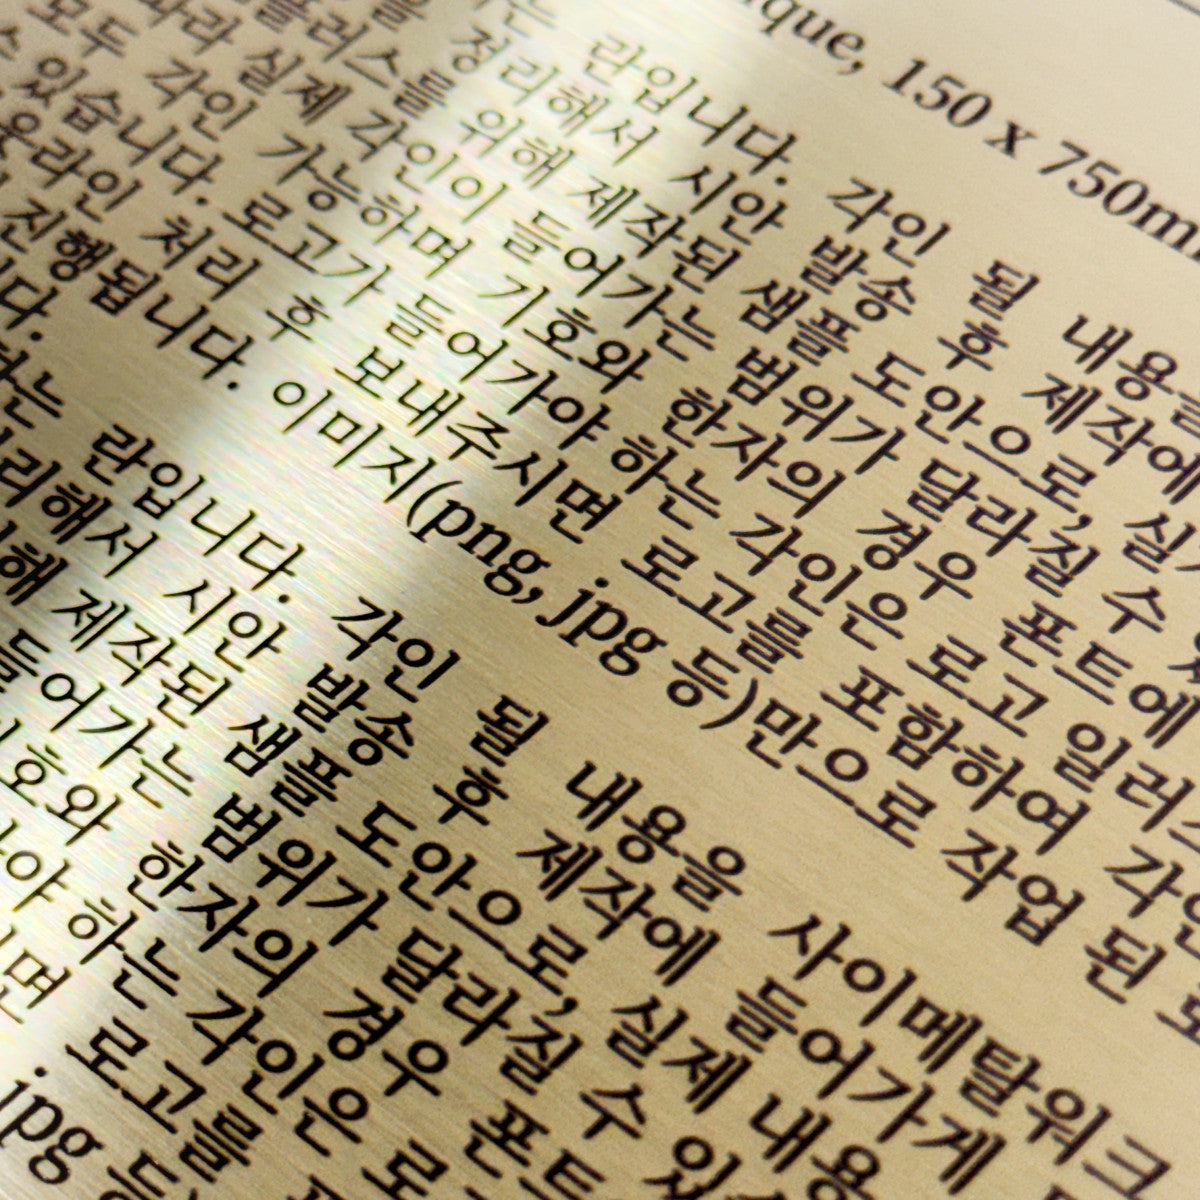 que, 150 x 750m
는 란입니다. 각인 될 내용을
정리해서 시안 발송 후 제작에
러스를 위해 제작된 샘플 도안으로, 실
따라 실제 각인이 들어가는 범위가 달라질 수
모두 각인 가능하며 기호와 한자의 경우 폰트에
있습니다. 로고가 들어가야 하는 각인은 로고 일러스
웃라인 처리 후 보내주시면 로고를 포함하여 각인
진행됩니다. 이미지(png, jpg 등)만으로 작업 된 로
다.
하는 란입니다. 각인 될 내용을 사이메탈워크
리해서 시안 발송 후 제작에 들어가게
해 제작된 샘플 도안으로, 실제 내용
들어가는 범위가 달라질 수 있
호와 한자의 경우 폰트
야 하는 각인은 로
면 로고를
jpg 등